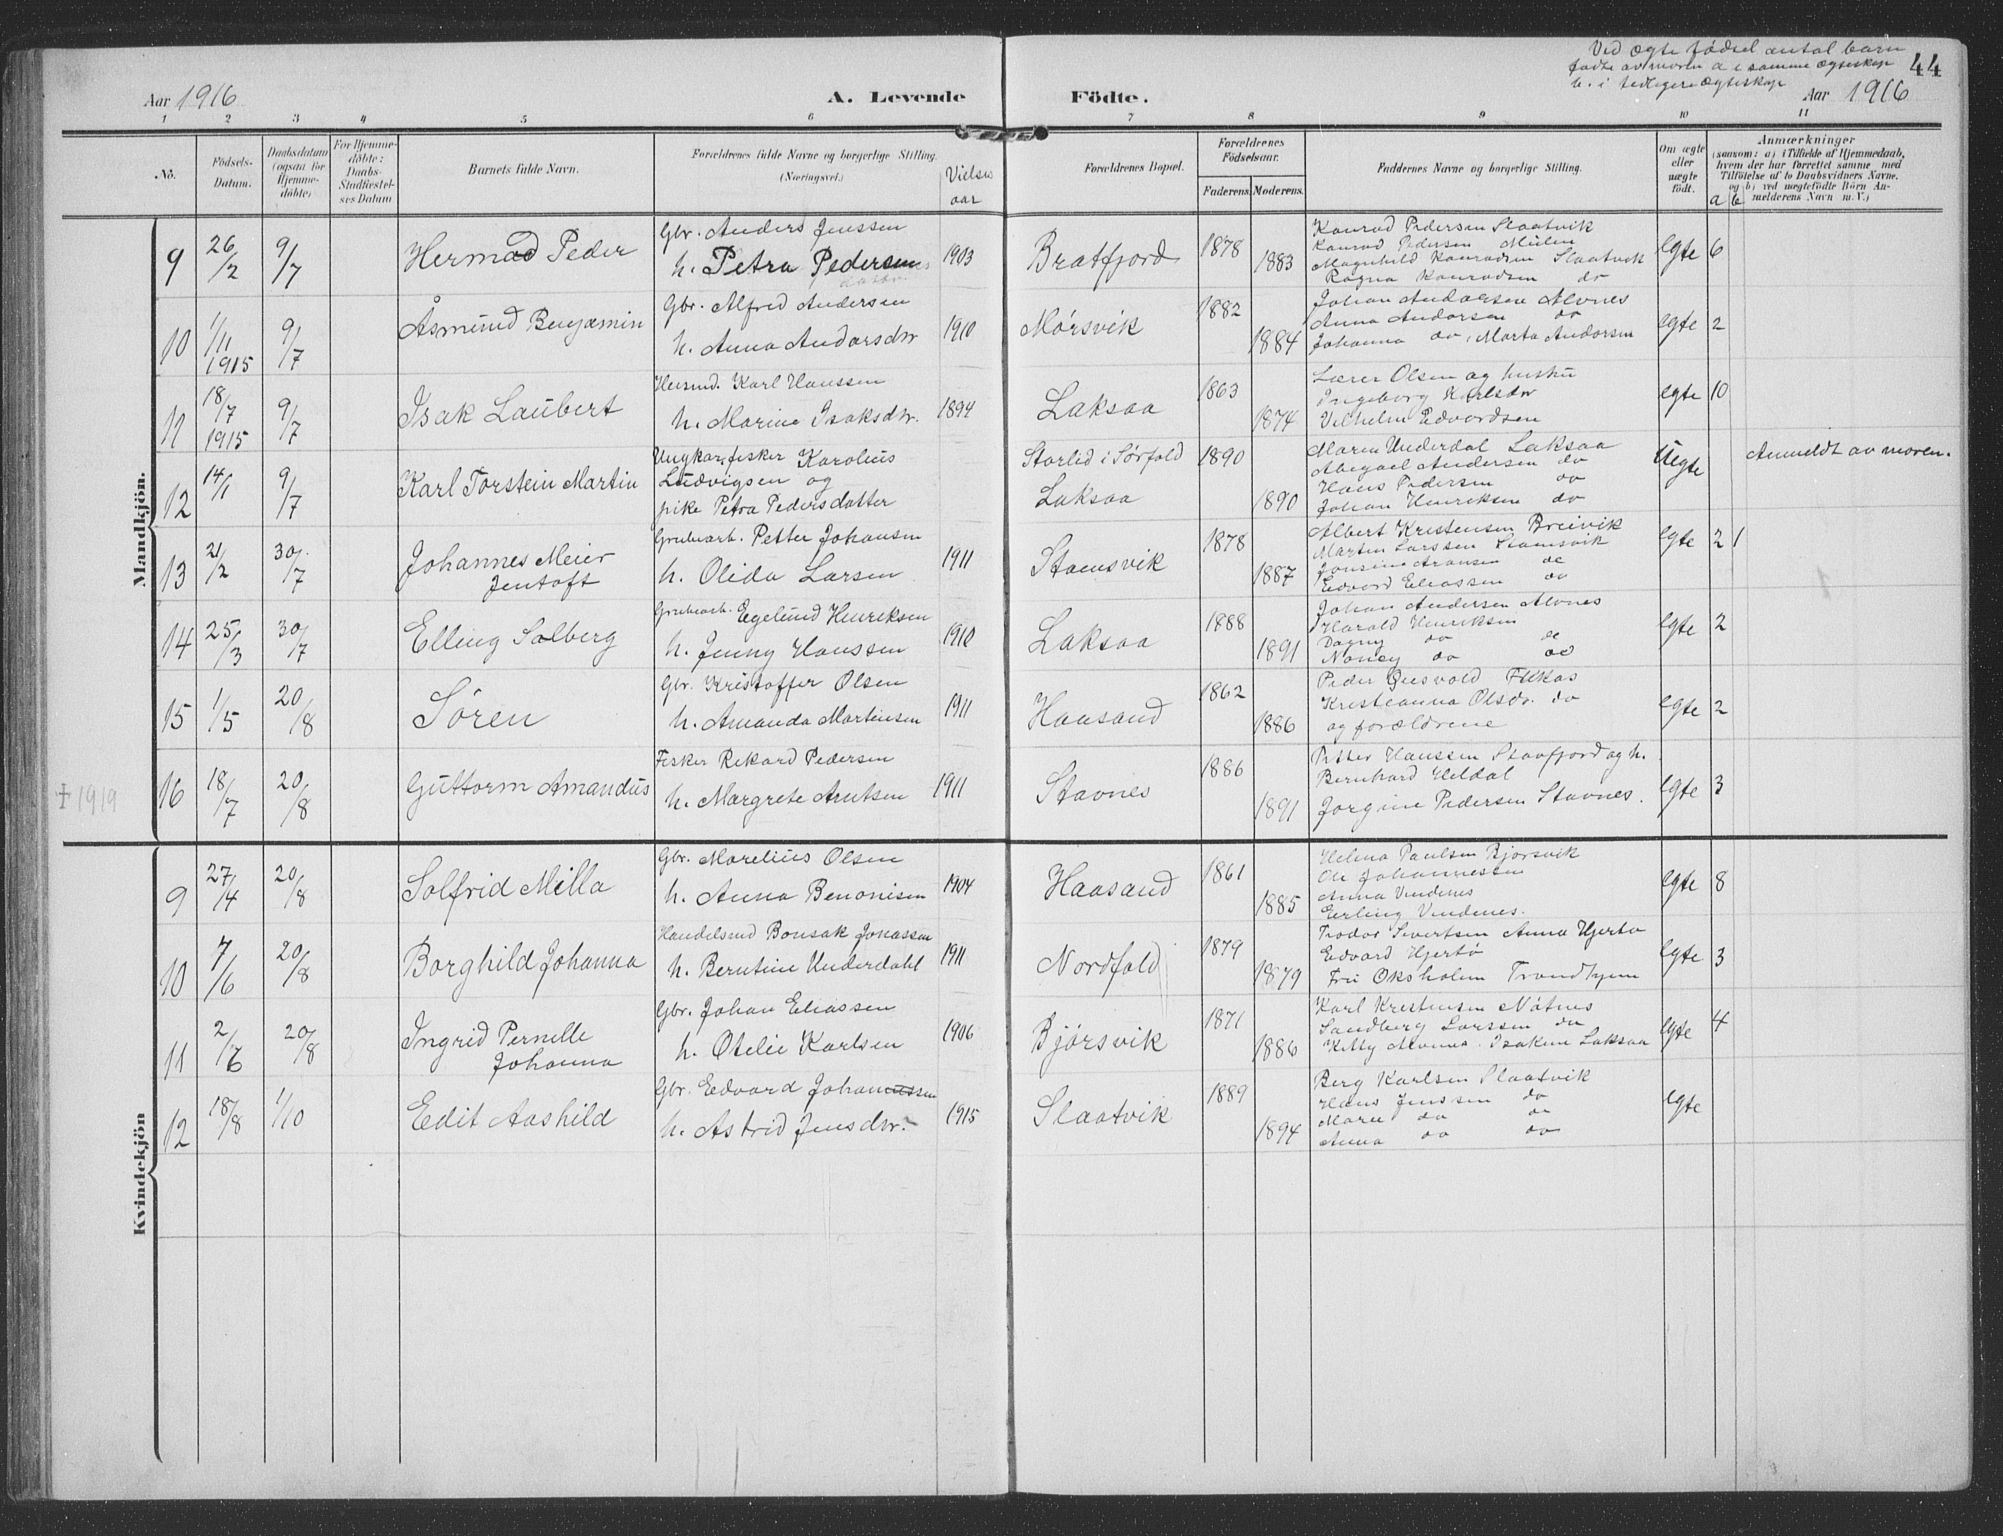 Ved ægte fødsel antal barn
fødte av moren a i samme ægteskap
b. i tidligere ægteskap
44
Aar 1916
A. Levende
Födte.
Aar 1916
1 2 3 4 5 6 7 8 9 10 11
No.
Födsels-Datum.
Daabsdatum (ogsaa for Hjemmedöbte)
For Hjemmedöbte: Daabs-Stadfæstelses Datum
Barnets fulde Navn.
Forældrenes fulde Navne og borgerlige Stilling. (Næringsvei.)
Vielses aar
Forældrenes Bopæl.
Forældrenes Födselsaar.
Faderens. Moderens.
Faddernes Navne og borgerlige Stilling.
Om ægte eller uægte födt.
Anmærkninger
(saasom: a) i Tilfælde af Hjemmedaab,
hvem der har forrettet samme med
Tilföielse af to Daabsvidners Navne.
og b) ved uægtefödte Börn An-
melderens Navn m. V.)
a b
Mandkjön.
9 26/2 9/7 Hermod Peder
Gbr. Anders Jenssen
h. Petra Pedersen 1903
Bratfjord 1878 1883
Konrad Pedersen Slaatvik
Konrad Pedersen
Magnhild Konradsen Slaatvik
Ragna Konradsen do
Egte 6
10 1/11 1915 9/7 Åsmund Benjamin
Gbr. Alfred Andersen
h. Anna Andersdtr 1910
Mørsvik 1882 1884
Johan Andersen Alvnes
Anna Andersen do
Johanna do, Marta Andersen
Egte 2
11 18/7 1915 9/7 Isak Laubert
Husmd. Karl Hanssen
h. Marine Isaksdtr. 1894
Laksaa 1863 1874
Lærer Olsen og hustru
Ingeborg Karlsdtr
Vilhelm Edvardsen
Egte 10
12 14/1 9/7 Karl Torstein Martin
Ungkar, fisker Karolius
Ludvigsen og
pike Petra Pedersdatter
Storlid i Sørfold 1890
Laksaa 1890
Maren Underdal Laksaa
Abegael Andersen do
Hans Pedersen do
Johan Henriksen do
Uegte
Anmeldt av moren.
13 21/2 30/7 Johannes Meier
Jentoft
Grubearb. Petter Johansen
h. Olida Larsen 1911
Stamsvik 1878 1887
Albert Kristensen Breivik
Martin Larssen Stamsvik
Jonsine Aronsen do
Edvard Eliassen do
Egte 2 1
14 25/3 30/7 Elling Solberg
Grubearb. Egelund Henriksen
h. Jenny Hanssen 1910
Laksaa 1888 1891
Johan Andersen Alvnes
Harald Henriksen
Dagny do do
Nancy do do
Egte 2
15 1/5 20/8 Søren
Gbr. Kristoffer Olsen
h. Amanda Martinsen 1911
Haasand 1862 1886
Peder
Kristianna Olsdr. do
og forældrene
Egte 2
† 1919
16 18/7 20/8 Guttorm Amandus
Fisker Rikard Pedersen
h. Margrete Arntsen 1911
Stavnes 1886 1891
Petter Hanssen Staafjord og h.
Bernhard Heldal
Jørgine Pedersen Stavnes.
Egte 3
Kvindekjön
9 27/4 20/8 Solfrid Milla
Gbr. Marelius Olsen
h. Anna Benonisen 1904
Haasand 1861 1885
Helena Paulsen Bjørsvik
Ole Johannessen
Anna Vindenes
Erling Vindenes.
Egte 8
10 7/6 20/8 Borghild Johanna
Handelsmd Bonsak Jonassen
h. Berntine Underdahl 1911
Nordfold 1879 1879
Teodor Sivertsen Anna Hjertø
Edvard Hjertø
Fru Oksholm Trondhjem
Egte 3
11 2/6 20/8 Ingrid Pernille
Johanna
Gbr. Johan Eliassen
h. Otelie Karlsen 1906
Bjørsvik 1871 1886
Karl Kristensen Nötnes
Sandberg Larssen do
Kitty Alvnes. Isakine Laksaa
Egte 4
12 18/8 1/10 Edit Aashild
Gbr. Edvard Johanssen
h. Astrid Jensdtr. 1915
Slaatvik 1889 1894
Berg Karlsen Slaatvik
Hans Jenssen do
Marie do do
Anna do do
Egte